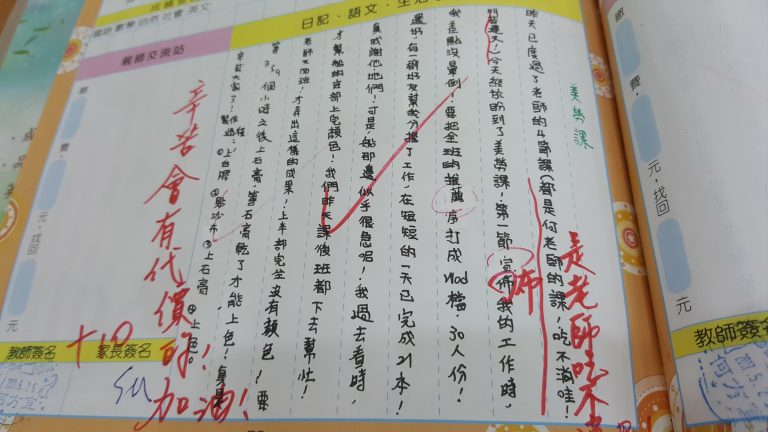 成績
國語 數學 自然 社會 英文
日記、語文、生活
親師交流站
繳
費,
元,找回
元
美勞課
昨天已度過了老師的4節課(都是何老師的課!吃不消哇!
今天終於盼到了美勞課!第一節宣佈我的工作時,
我差點沒暈倒!要把全班的推薦序打成Word檔,30人份!
還好有一群好友幫我分擔了工作,在短短的一天已完成21本!
真感謝他(她)們!可是,船那邊似乎很急呢!我過去看時,
才幫船的底部上完顏色!我們昨天課後班都下去幫忙!
才弄出這樣的成果!上半部完全沒有顏色!要
等 個小時之後上石膏,等石膏乾了才能上色!真是
辛苦大家了!
製過:①上白膠 ②點沙布 ③上石膏 ④上色。
佈
是老師吃不
辛苦會有代價的!
加油!
+10
教師簽名
家長簽名
繳
費,
元,找回
元
教師簽名